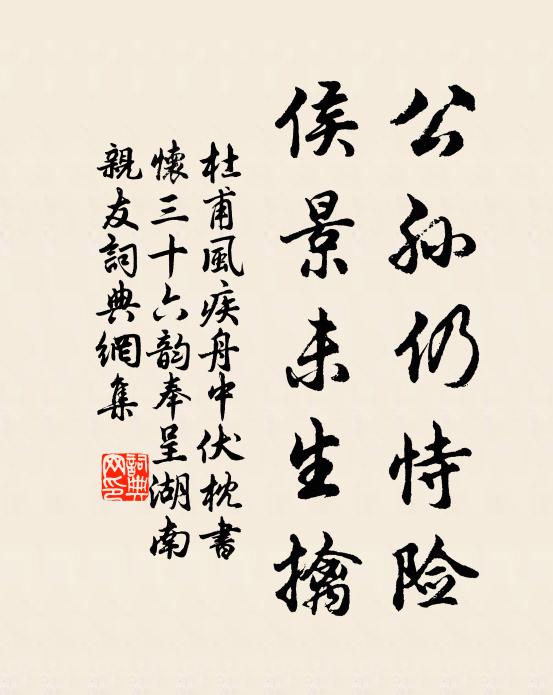 公孙仍恃险
侯景未生擒
杜甫風疾舟中伏枕書
懷三十六韵奉呈湖南
親友詞典網集
詞典
网印